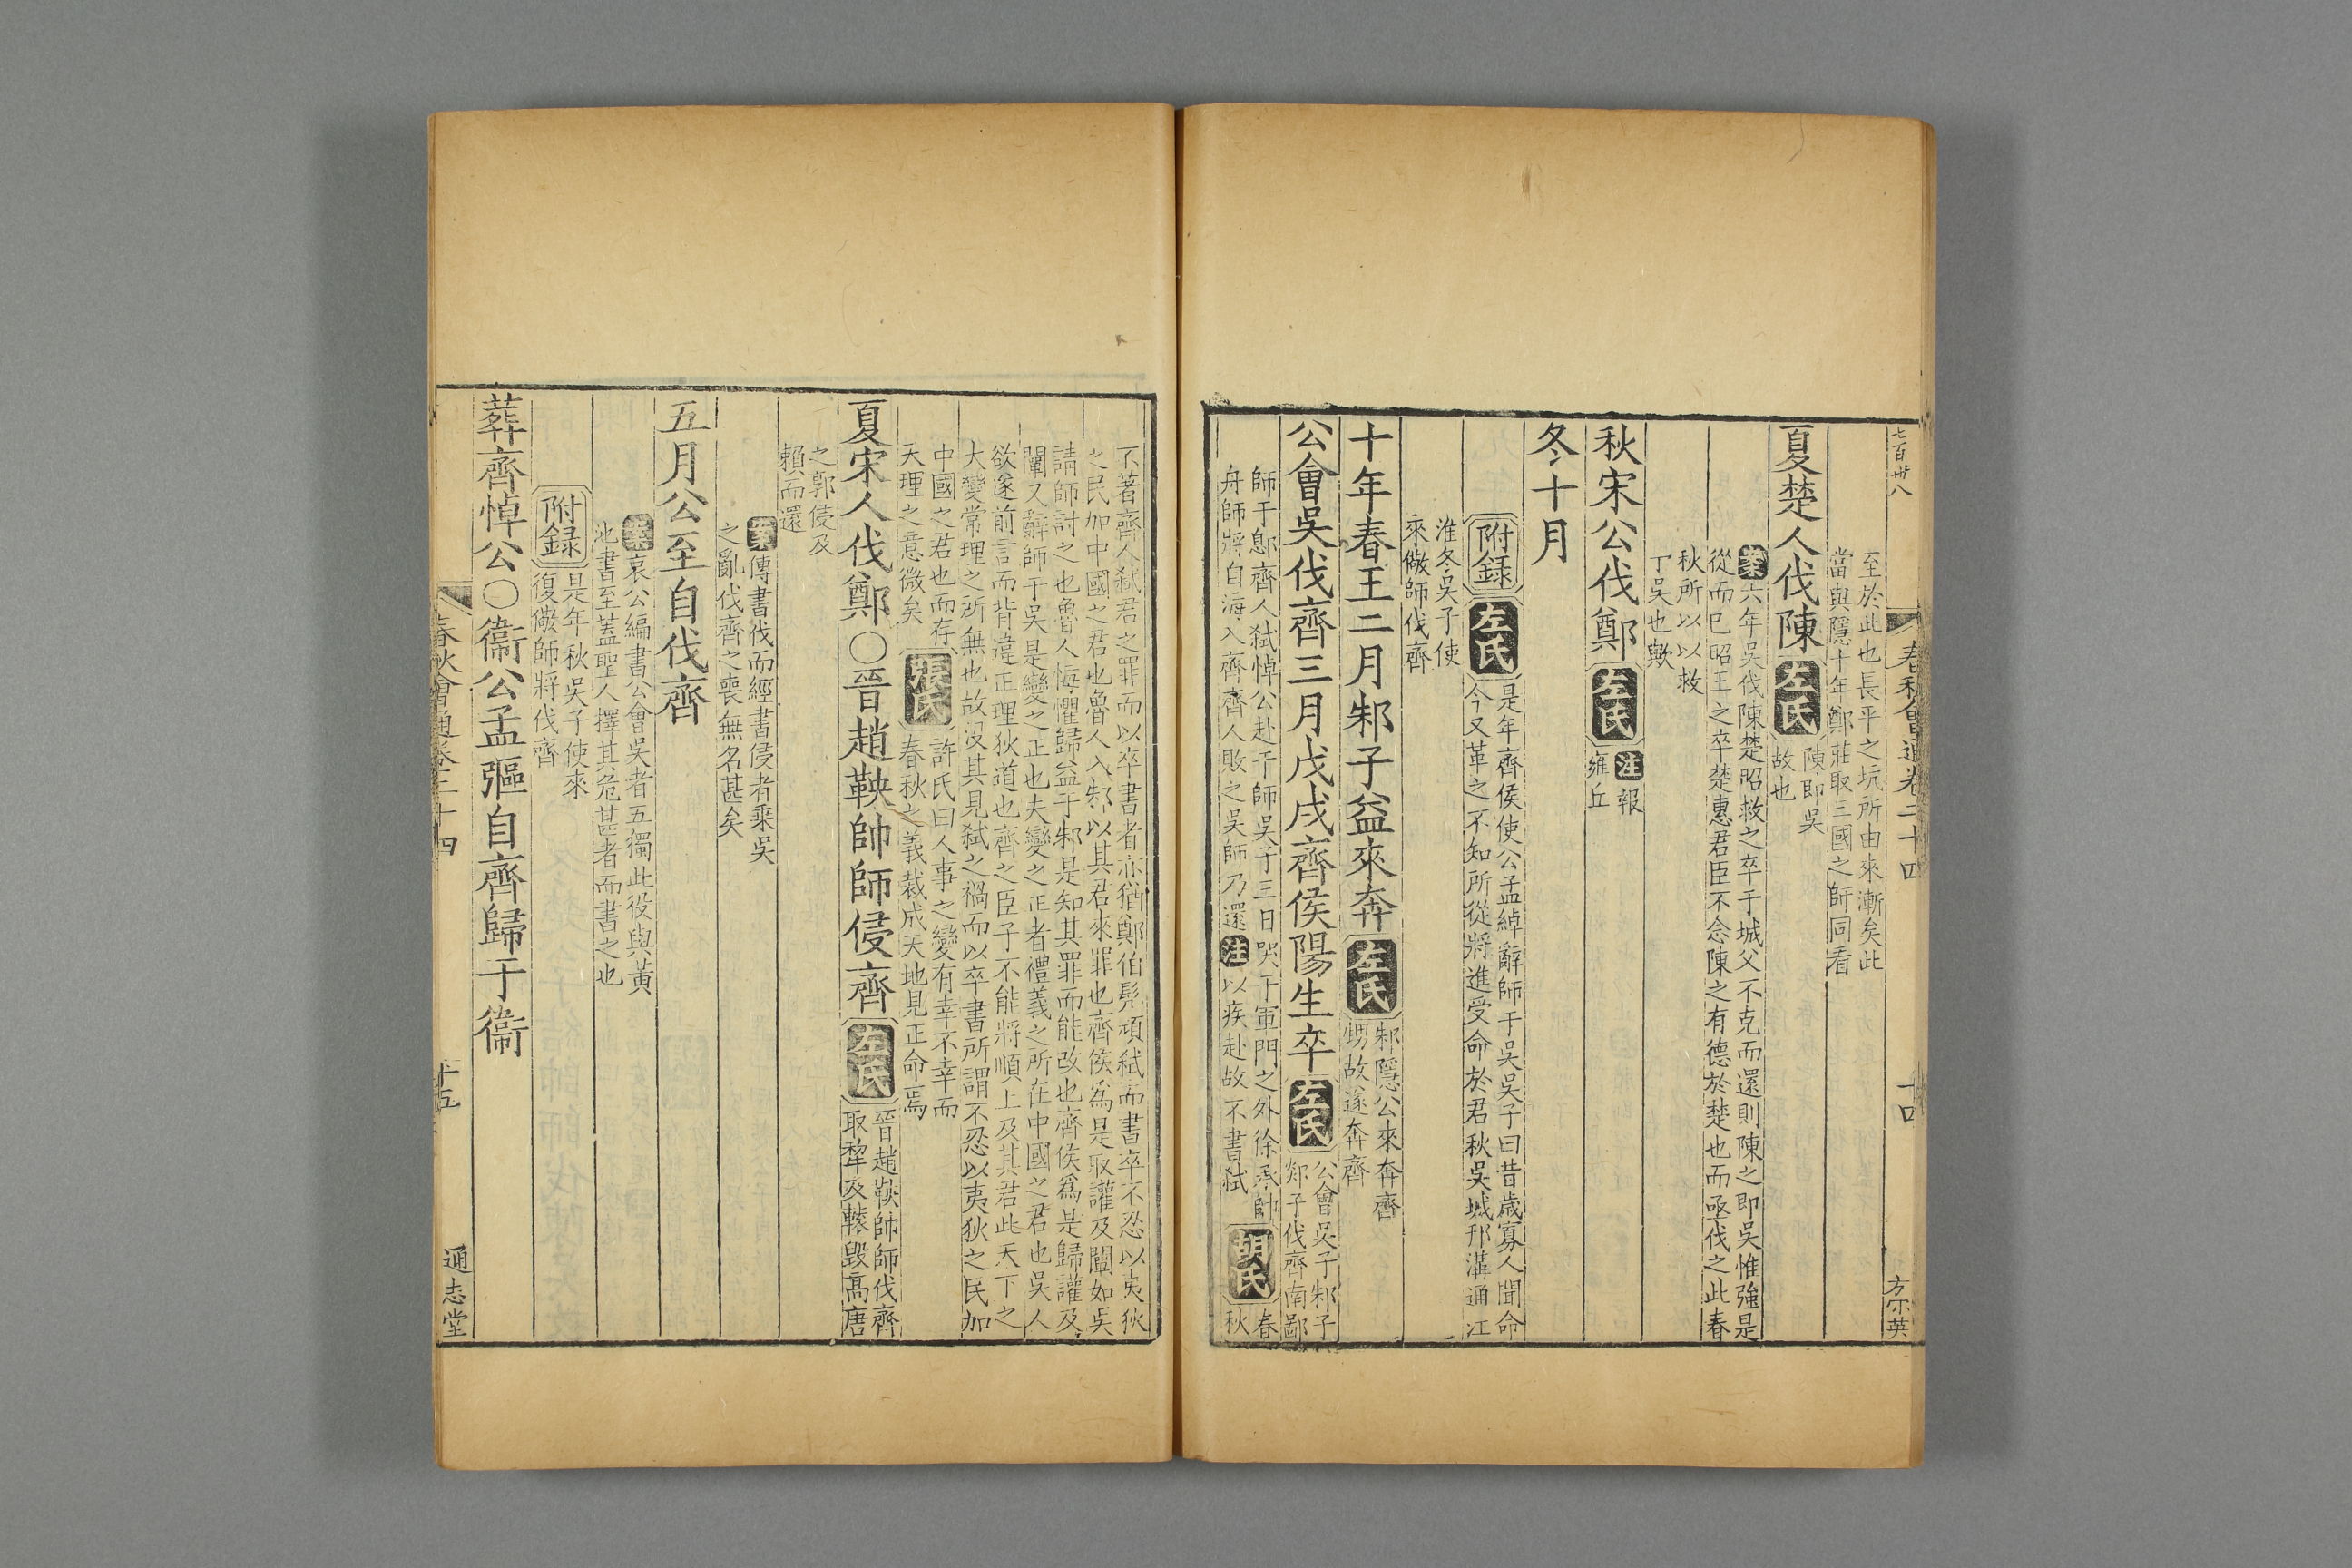 七百卅八
春秋會通卷二十四
十四
方宗英
至於此也長平之坑所由來漸矣此
當與隱十年鄭莊取三國之師同看
夏楚人伐陳
左氏
陳即吳
故也
案六年吳伐陳楚昭救之卒于城父不克而還則陳之即吳惟強是
從而已昭王之卒楚惠君臣不念陳之有德於楚也而亟伐之此春
秋所以以救
丁吳也歟
秋宋公伐鄭
左氏
注報
雍丘
冬十月
附録
左氏
是年齊侯使公孟綽辭師于吳吳子曰昔歲寡人聞命
今又革之不知所從將進受命於君秋吳城邗溝通江
淮冬吳子使
來儆師伐齊
十年春王二月邾子益來奔
左氏
邾隱公來奔齊
甥故遂奔齊
公會吳伐齊三月戊戌齊侯陽生卒
左氏
公會吳子邾子
郯子伐齊南鄙
師于鄎齊人弑悼公赴于師吳子三日哭于軍門之外徐承帥
舟師將自海入齊齊人敗之吳師乃還注以疾赴故不書弑
胡氏
春
秋
不著齊人弑君之罪而以卒書者亦猶鄭伯髡頑弑而書卒不忍以夷狄
之民加中國之君也魯人入邾以其君來罪也齊侯爲是取讙及闡如吳
請師討之也魯人悔懼歸益于邾是知其罪而能改也齊侯爲是歸讙及
闡又辭師于吳是變之正也夫變之正者禮義之所在中國之君也吳人
欲遂前言而背違正理狄道也齊之臣子不能將順上及其君此天下之
大變常理之所無也故沒其見弑之禍而以卒書所謂不忍以夷狄之民加
中國之君也而存
天理之意微矣
張氏
許氏曰人事之變有幸不幸而
春秋之義裁成天地見正命焉
夏宋人伐鄭○晉趙鞅帥師侵齊
左氏
晉趙鞅帥師伐齊
取犂及轅毀高唐
之郭侵及
賴而還
案傳書伐而經書侵者乘吳
之亂伐齊之喪無名甚矣
五月公至自伐齊
案哀公編書公會吳者五獨此役與黃
池書至蓋聖人擇其危甚者而書之也
附録
是年秋吳子使來
復儆師將伐齊
葬齊悼公○衞公孟彄自齊歸于衞
春秋會通卷二十四
十五
通志堂